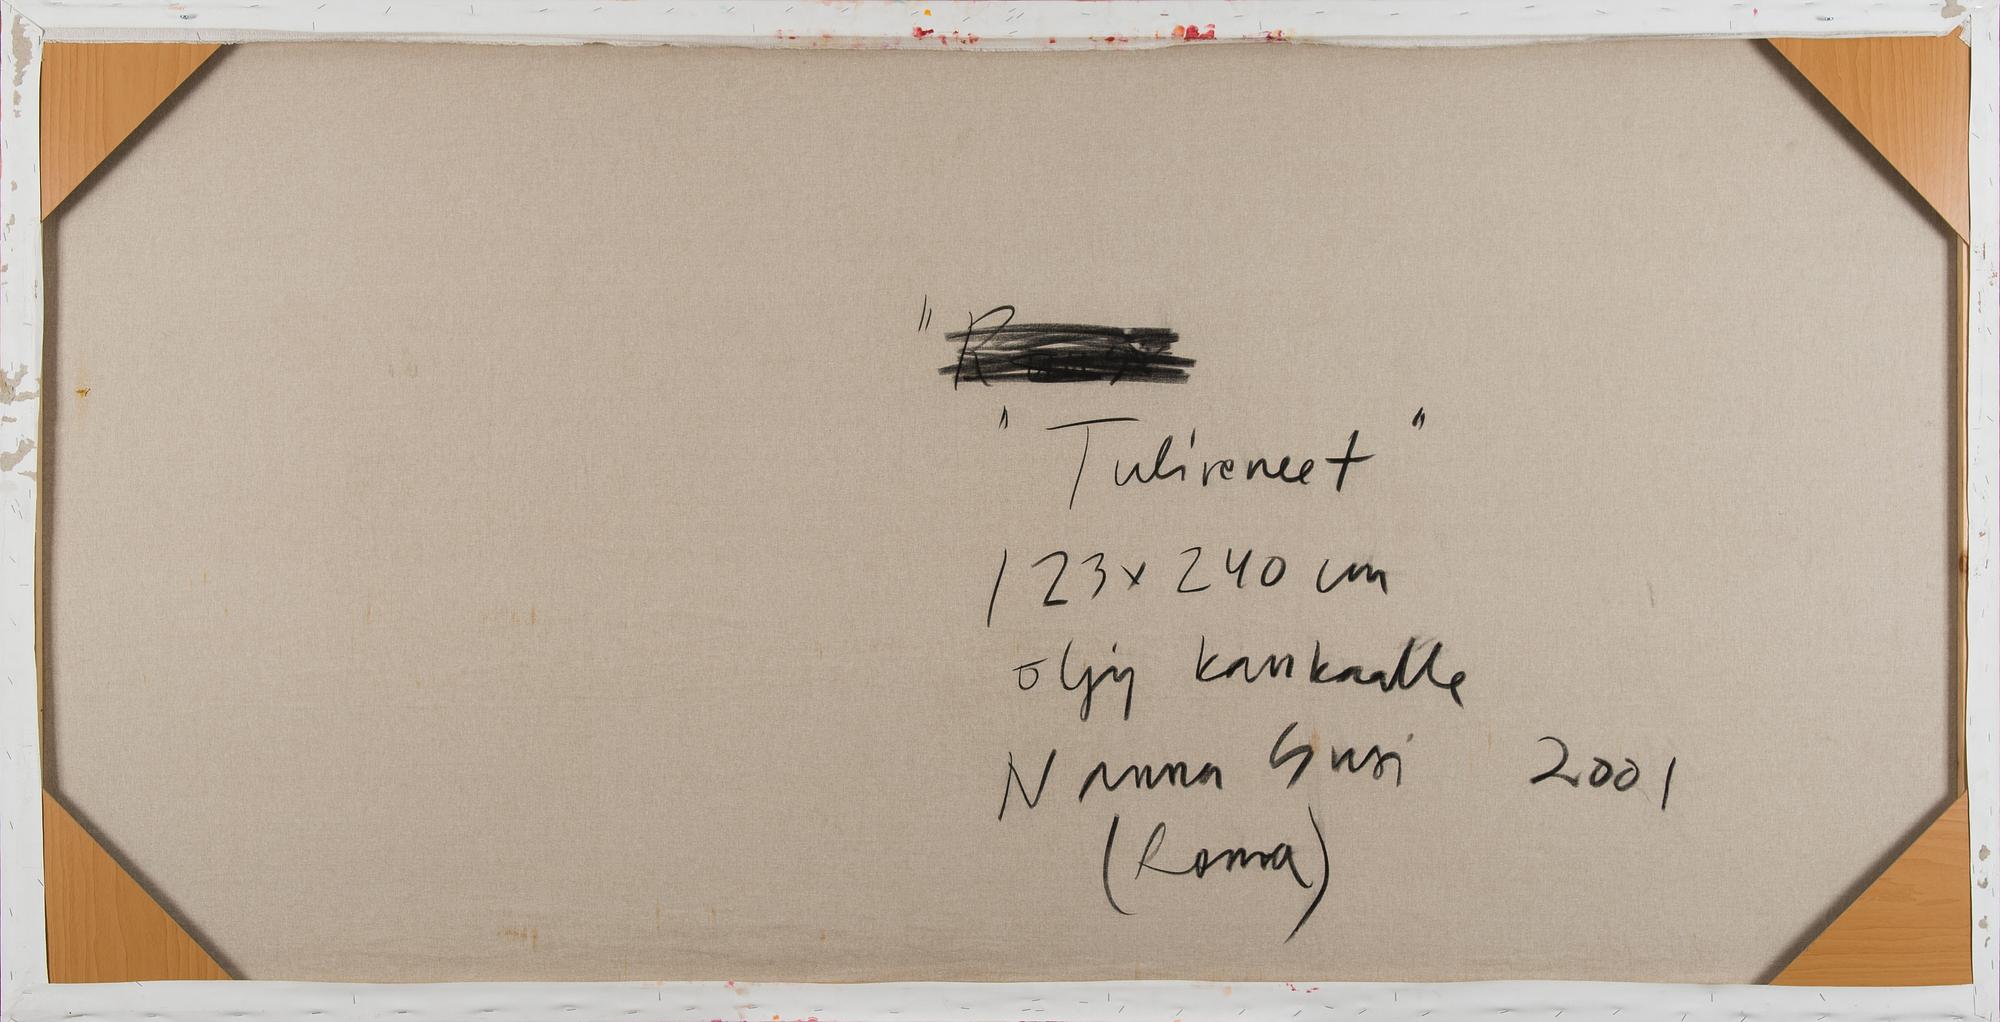 "Tuliveneet"
123 x 240 cm
öljy kankaalle
Nanna Susi 2001
(Roma)